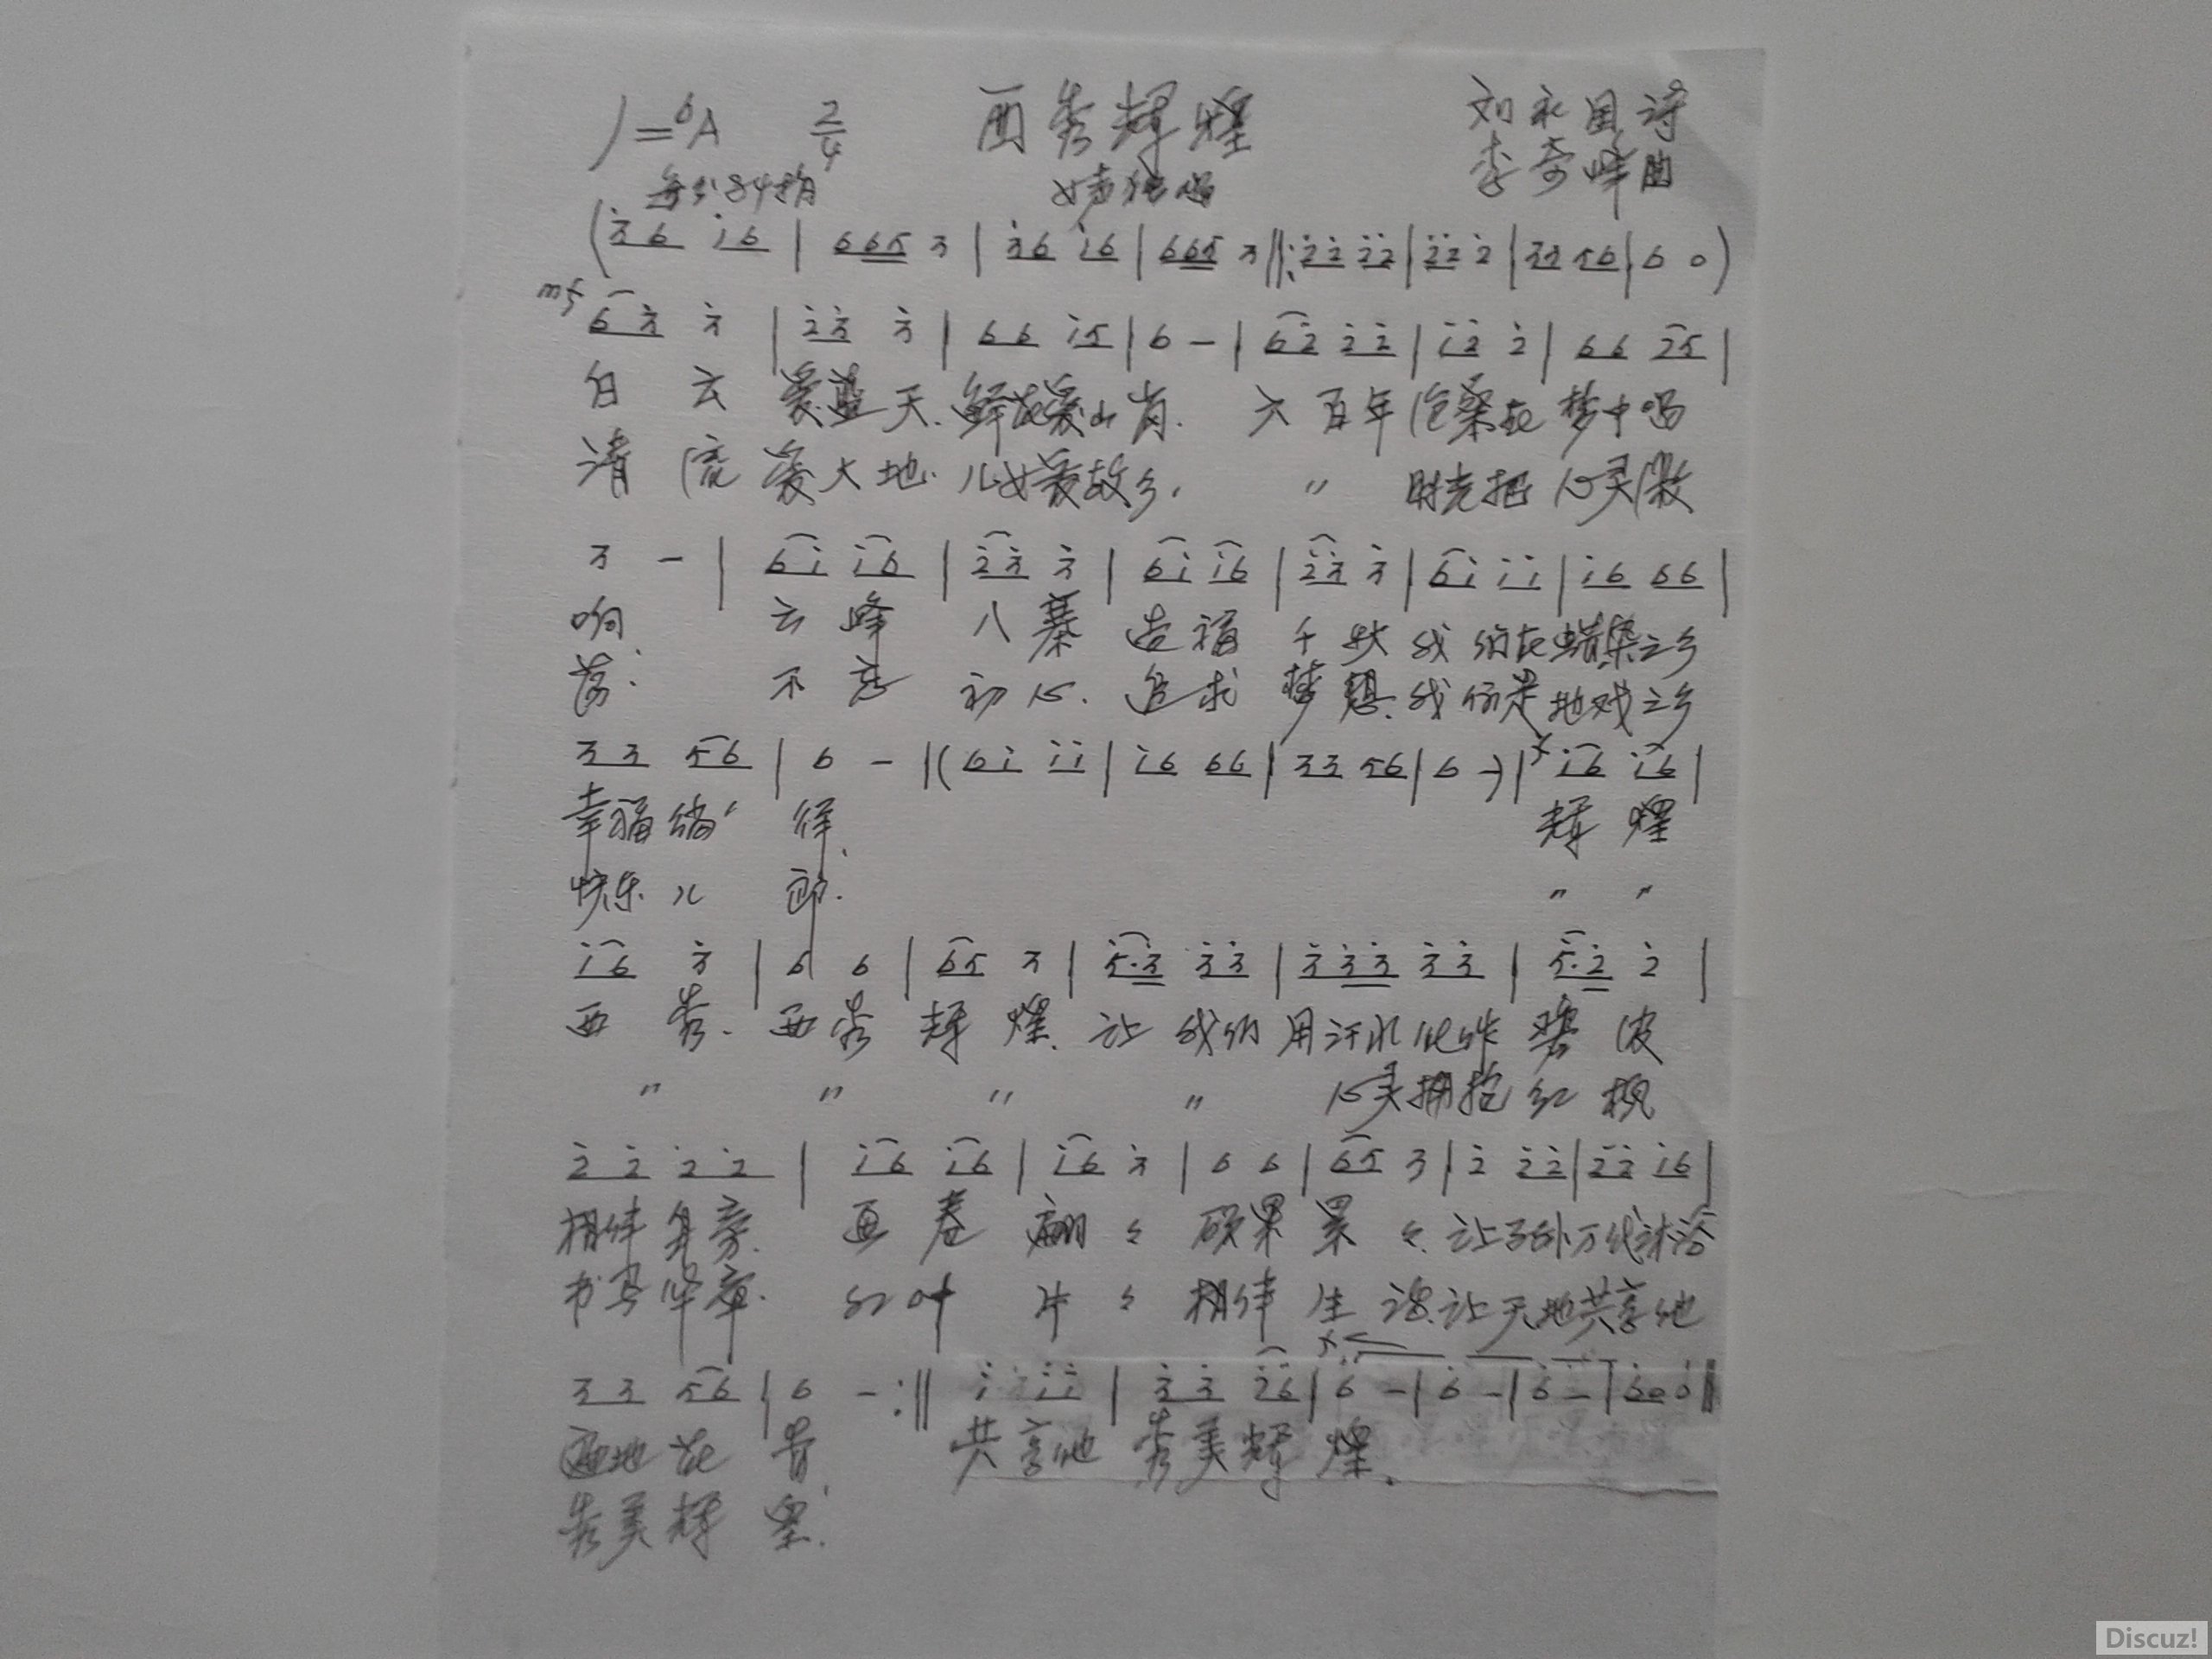 1=♭A 2/4 西秀辉煌 刘永国诗
每分84拍 女声独唱 李奇峰曲
(3̇6 1̇6 | 665 3 | 3̇6 1̇6 | 665 3 ‖: 2̇2̇ 2̇2̇ | 2̇2̇ 2̇ | 33 56 | 6 0 )
mf 63̇ 3̇ | 2̇3̇ 3̇ | 66 1̇5 | 6 - | 62̇ 2̇2̇ | 1̇2̇ 2̇ | 66 25 |
白云爱蓝天.鲜花爱山岗. 六百年沧桑在梦中唱
清流爱大地.儿女爱故乡. 〃 时光把心灵激
3 - | 61̇ 1̇6 | 2̇3̇ 3̇ | 61̇ 1̇6 | 2̇3̇ 3̇ | 61̇ 1̇1̇ | 1̇6 66 |
响. 云峰八寨 造福千秋 我们在蜡染之乡
荡. 不忘初心. 追求梦想.我们是地戏之乡
33 56 | 6 - |(61̇ 1̇1̇ | 1̇6 66 | 33 56 | 6 -)| f 1̇6 1̇6 |
幸福徜徉. 辉煌
快乐儿郎. 〃 〃
1̇6 3̇ | 6 6 | 65 3 | 5̇·3̇ 3̇3̇ | 3̇3̇3̇ 3̇3̇ | 5̇·2̇ 2̇ |
西秀.西秀辉煌.让我们用汗水化作碧波
〃 〃 〃 〃 心灵拥抱红枫
2̇2̇ 2̇2̇ | 1̇6 1̇6 | 1̇6 3̇ | 6 6 | 65 3 | 2̇ 2̇2̇ | 2̇2̇ 1̇6 |
相伴身旁. 画卷翩々 硕果累々.让子孙万代沐浴
书写华章. 红叶片々 相伴生 让天地共享他
33 56 | 6 - :‖ 1̇ 1̇1̇ | 3̇3̇ 2̇6̇ | 6̇ - | 6̇ - | 6̇ - | 6̇0 0 ‖
遍地花香. 共享他秀美辉煌.
秀美辉煌.
Discuz!